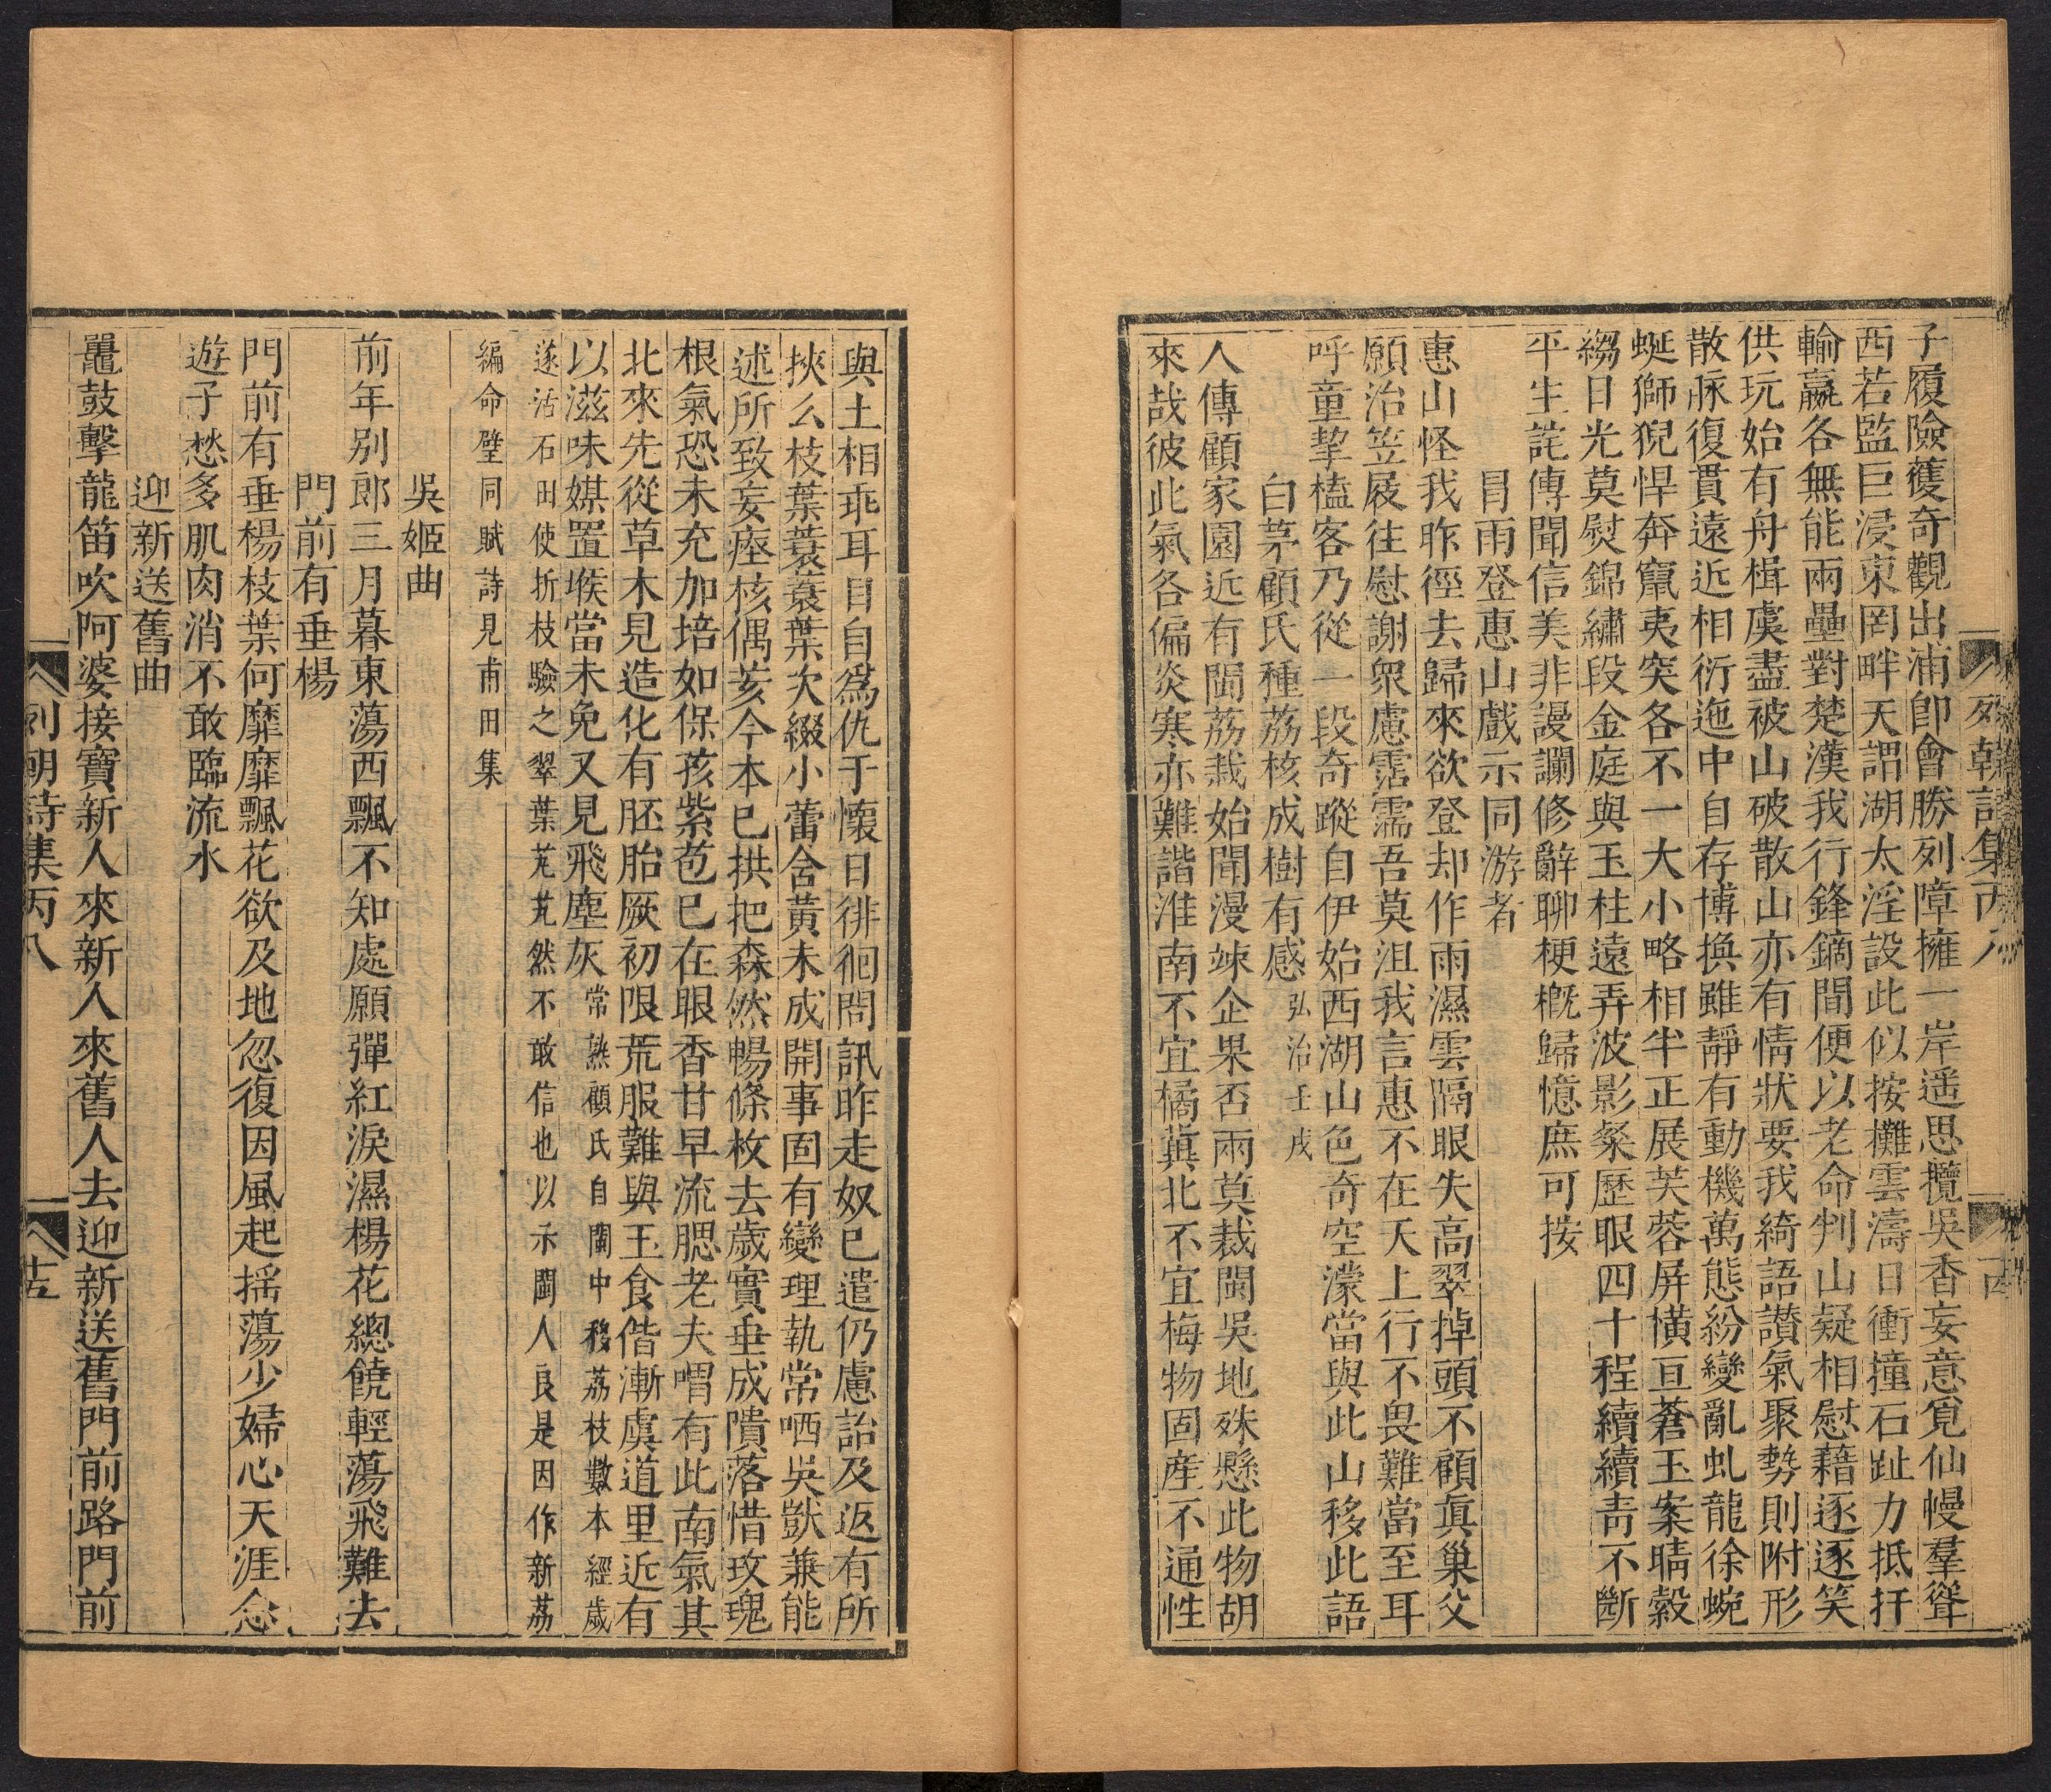 列朝詩集丙八
子履險獲奇觀出浦即會勝列障擁一岸遥思攬吳香妄意覓仙幔羣聳
西若監巨浸東罔畔天謂湖太淫設此似按攤雲濤日衝撞石趾力抵扞
輸嬴各無能兩壘對楚漢我行鋒鏑間便以老命判山疑相慰藉逐逐笑
供玩始有舟楫虞盡被山破散山亦有情狀要我綺語讃氣聚勢則附形
散脉復貫遠近相衍迤中自存博換雖靜有動機萬態紛變亂虬龍徐蜿
蜒獅猊悍奔竄夷突各不一大小略相半正展芙蓉屏橫亘蒼玉案晴縠
縐日光莫熨錦繡段金庭與玉柱遠弄波影粲歷眼四十程續續青不斷
平生詫傳聞信美非謾讕修辭聊梗槪歸憶庶可按
冒雨登惠山戲示同游者
惠山怪我昨徑去歸來欲登却作雨濕雲隔眼失高翠掉頭不顧眞巢父
願治笠屐往慰謝衆慮霑濡吾莫沮我言惠不在天上行不畏難當至耳
呼童挈榼客乃從一段奇蹤自伊始西湖山色奇空濛當與此山移此語
白茅顧氏種荔核成樹有感弘治壬戌
人傳顧家園近有閩荔栽始聞漫竦企果否兩莫裁閩吳地殊懸此物胡
來哉彼此氣各偏炎寒亦難諧淮南不宜橘冀北不宜梅物固産不通性
與土相乖耳目自爲仇于懷日徘徊問訊昨走奴已遣仍慮詒及返有所
挾么枝葉蓑蓑葉次綴小蕾含黃未成開事固有變理執常哂吳獃兼能
述所致妄瘞核偶荄今本已拱把森然暢條枚去歲實垂成隤落惜玫瑰
根氣恐未充加培如保孩紫苞已在眼香甘早流腮老夫喟有此南氣其
北來先從草木見造化有胚胎厥初限荒服難與玉食偕漸虞道里近有
以滋味媒置堠當未免又見飛塵灰常熟顧氏自閩中移荔枝數本經歲
遂活石田使折枝驗之翠葉芃芃然不敢信也以示閩人良是因作新荔
編命璧同賦詩見甫田集
吳姬曲
前年别郎三月暮東蕩西飄不知處願彈紅淚濕楊花總饒輕蕩飛難去
門前有垂楊
門前有垂楊枝葉何靡靡飄花欲及地忽復因風起揺蕩少婦心天涯念
遊子愁多肌肉消不敢臨流水
迎新送舊曲
鼉鼓擊龍笛吹阿婆接寶新人來新人來舊人去迎新送舊門前路門前
列朝詩集丙八